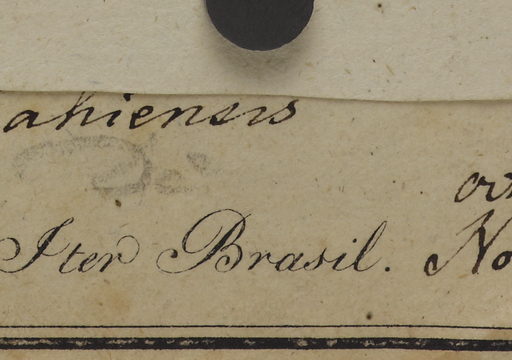 ahiensis
Iter Brasil. No